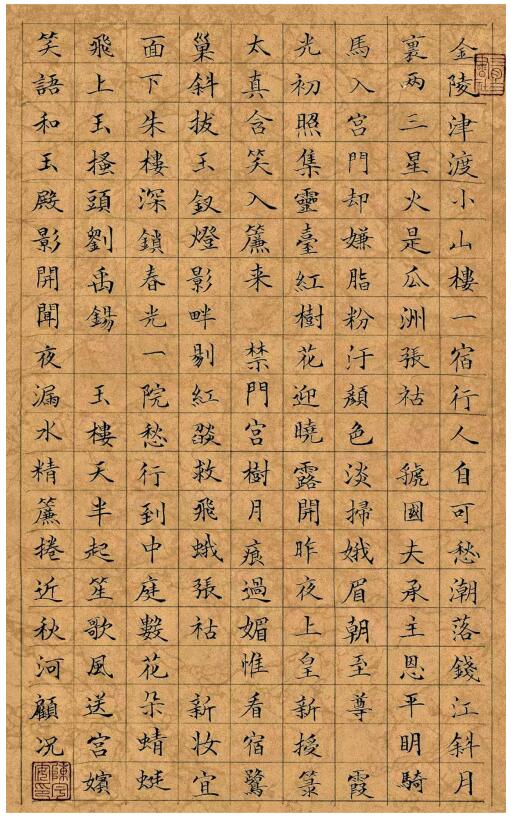 金陵津渡小山樓一宿行人自可愁潮落錢江斜月
裏兩三星火是瓜洲張祜 虢國夫承主恩平明騎
馬入宮門却嫌脂粉汙顏色 淡掃娥眉朝至尊 霞
光初照集靈臺紅樹花迎曉露開昨夜上皇新授籙
太真含笑入簾来 禁門宮樹月痕過媚惟看宿鷺
巢斜拔玉釵燈影畔剔紅燄救飛蛾張祜 新妝宜
面下朱樓深鎖春光一院愁行到中庭數花朵蜻蜓
飛上玉搔頭劉禹錫 玉樓天半起笙歌風送宮嬪
笑語和玉殿影開聞夜漏水精簾捲近秋河顧況